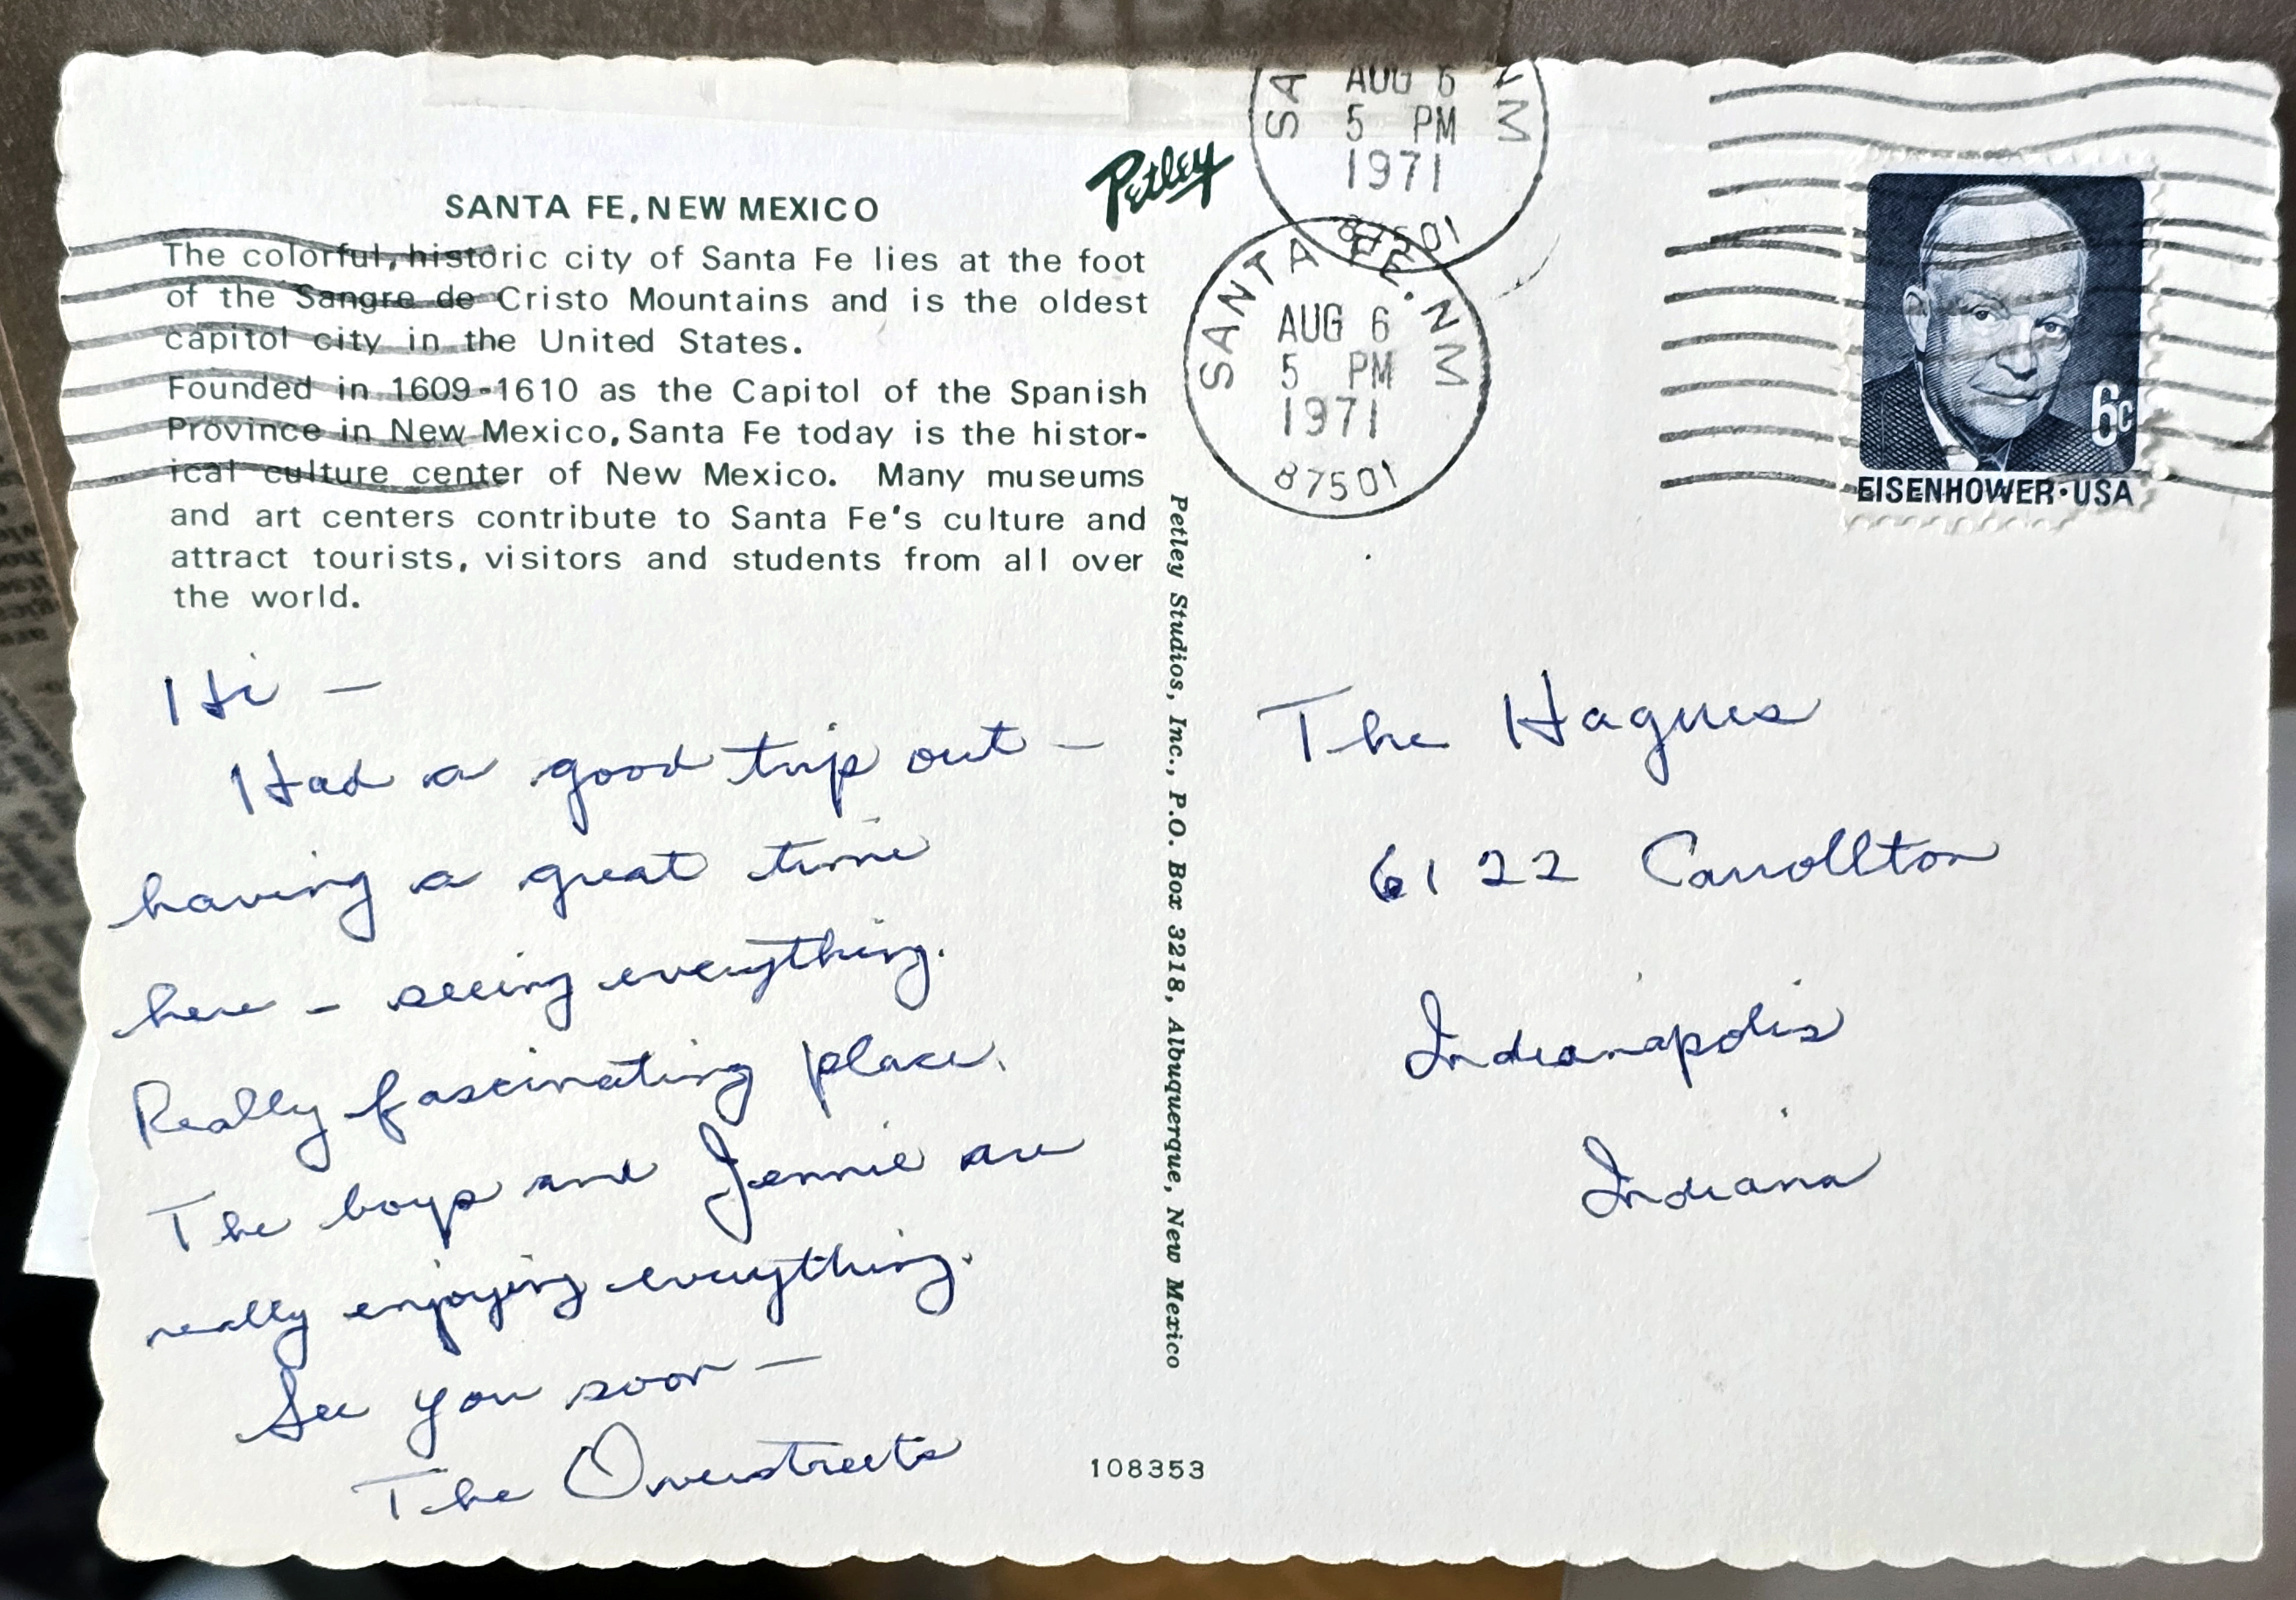 SANTA FE, NEW MEXICO
The colorful, historic city of Santa Fe lies at the foot
of the Sangre de Cristo Mountains and is the oldest
capitol city in the United States.
Founded in 1609-1610 as the Capitol of the Spanish
Province in New Mexico, Santa Fe today is the histor-
ical culture center of New Mexico. Many museums
and art centers contribute to Santa Fe's culture and
attract tourists, visitors and students from all over
the world.
Hi —
Had a good trip out —
having a great time
here - seeing everything.
Really fascinating place.
The boys and Jennie are
really enjoying everything.
See you soon —
The Overstreets
Petley
Petley Studios, Inc., P.O. Box 3218, Albuquerque, New Mexico
108353
SA NM
AUG 6
5 PM
1971
87501
SANTA FE. NM
AUG 6
5 PM
1971
87501
6c
EISENHOWER·USA
The Hagues
6122 Carrollton
Indianapolis
Indiana